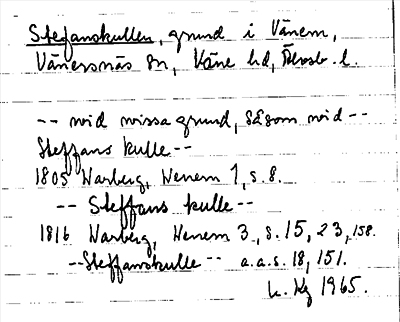 Stefanskullen, grund i Vänern,
Vänersnäs sn, Väne hd, Älvsb. l.
-- wid wissa grund, såsom wid --
Steffans kulle --
1805 Warberg, Wenern 1, s. 8.
-- Steffans kulle --
1816 Warberg, Wenern 3, s. 15, 23, 158.
-- Steffanskulle -- a.a. s. 18, 151.
1965.